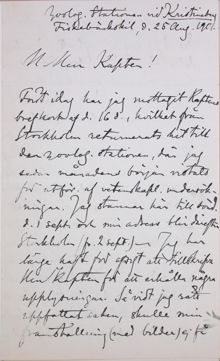 Zoolog. Stationen vid Kristineberg
Fiskebäckskil, d. 25 Aug. 1901.
Herr Kapten!
Först idag har jag mottagit Kaptens
brefkort af d. 16 d:s, hvilket från
Stockholm returnerats hit till
den zoolog. stationen, där jag
sedan månadens början vistats
för utför. af vetenskapl. undersök-
ningar. Jag stannar här till
d. 1 sept. och min adress blir därefter
Stockholm (fr. 2 sept.) Jag har
länge haft för afsigt att tillskrifva
Herr Kapten för att erhålla några
upplysningar. Så vidt jag rätt
uppfattat saken, skulle min
framställning (med bilder) ej få